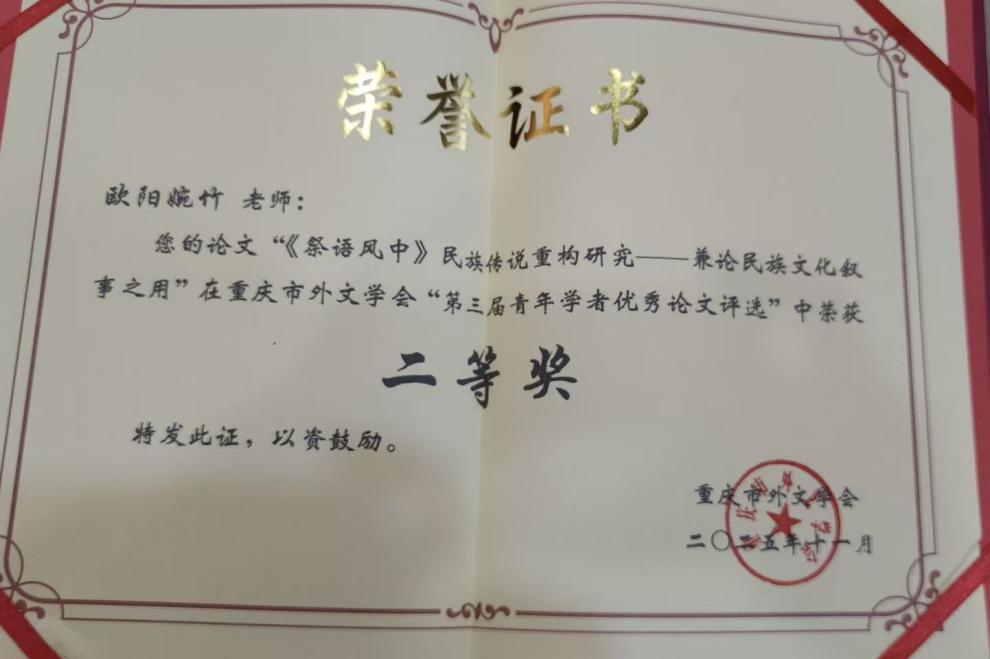 荣誉证书
欧阳婉竹 老师：
您的论文“《祭语风中》民族传说重构研究——兼论民族文化叙
事之用”在重庆市外文学会“第三届青年学者优秀论文评选”中荣获
二等奖
特发此证，以资鼓励。
重庆市外文学会
二〇二五年十一月